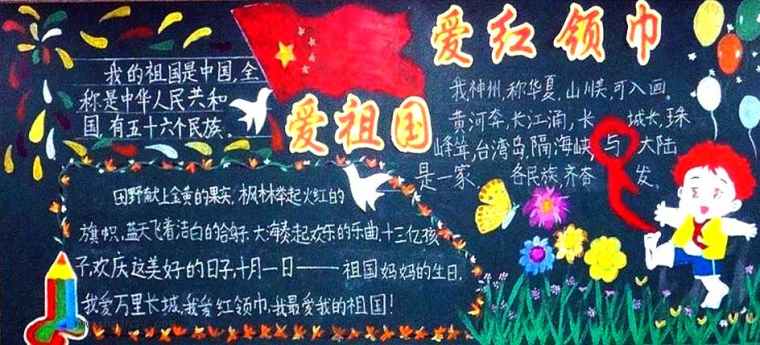 我的祖国是中国,全
称是中华人民共和
国,有五十六个民族。
爱祖国
爱红领巾
我神州,称华夏,山川美,可入画。
黄河奔,长江涌,长 城长,珠
峰耸,台湾岛,隔海峡,与 大陆
是一家, 各民族,齐奋 发。
田野献上金黄的果实,枫林举起火红的
旗帜,蓝天飞着洁白的 大海奏起欢乐的乐曲,十三亿孩
子,欢庆这美好的日子,十月一日——祖国妈妈的生日,
我爱万里长城,我爱红领巾,我最爱我的祖国!